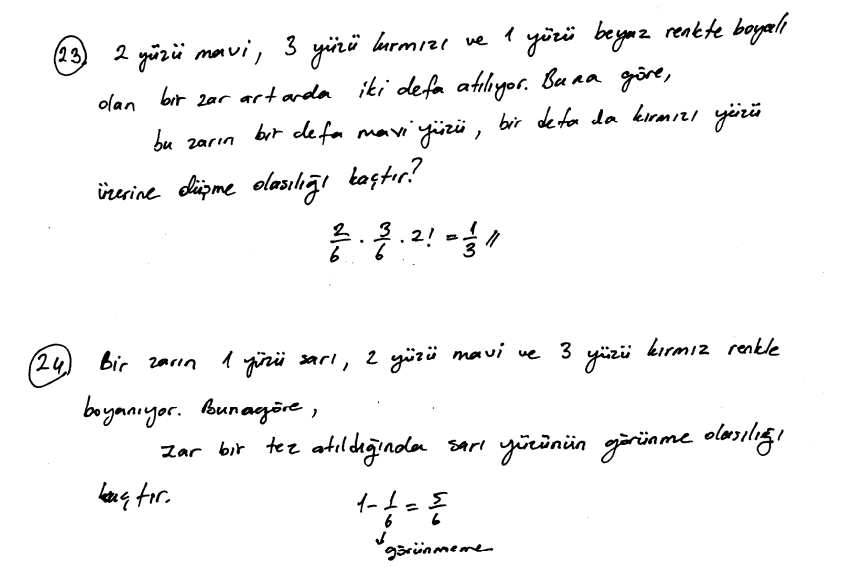 23 2 yüzü mavi, 3 yüzü kırmızı ve 1 yüzü beyaz renkte boyalı
olan bir zar artarda iki defa atılıyor. Buna göre,
bu zarın bir defa mavi yüzü, bir defa da kırmızı yüzü
üzerine düşme olasılığı kaçtır?
2/6 . 3/6 . 2! = 1/3 //
24 Bir zarın 1 yüzü sarı, 2 yüzü mavi ve 3 yüzü kırmız renkle
boyanıyor. Bunagöre,
zar bir tez atıldığında sarı yüzünün görünme olasılığı
kaçtır.
1 - 1/6 = 5/6
↓ görünmeme